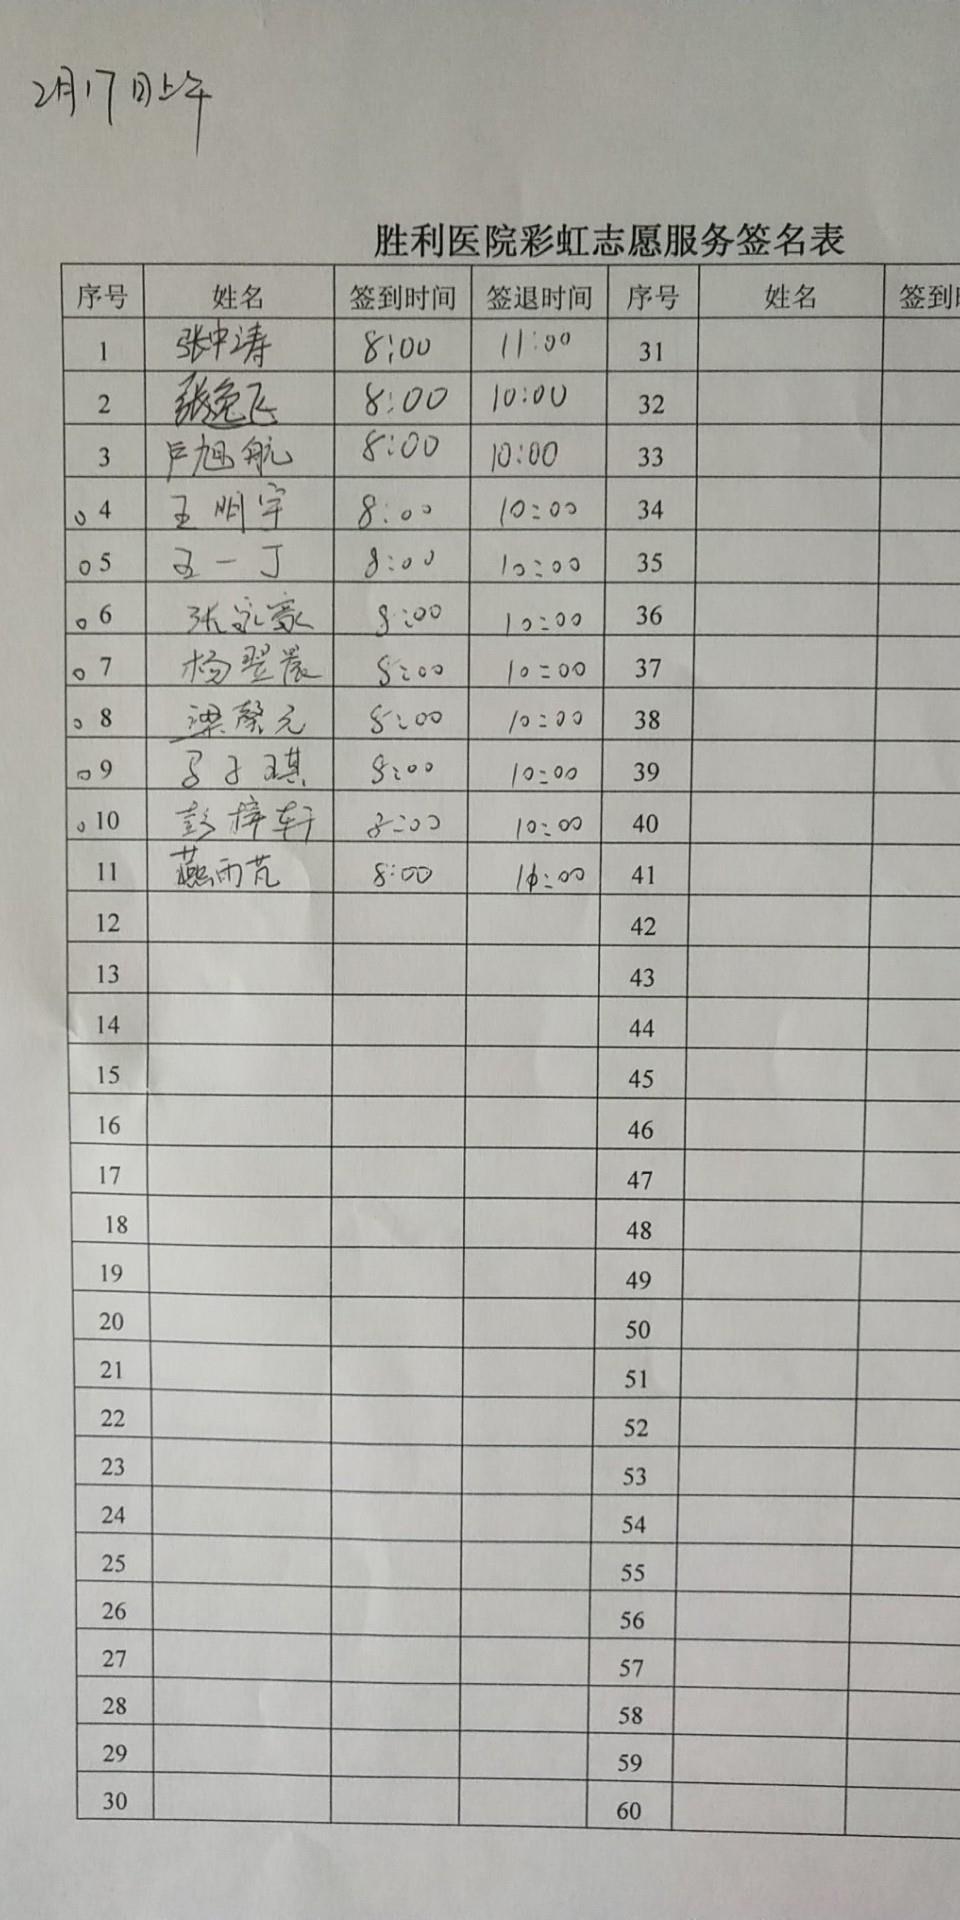 2月17日上午
胜利医院彩虹志愿服务签名表
序号 姓名 签到时间 签退时间 序号 姓名 签到
1 张中涛 8:00 11:00 31
2 张逸飞 8:00 10:00 32
3 卢旭航 8:00 10:00 33
4 王明宇 8:00 10:00 34
5 王一丁 8:00 10:00 35
6 张家豪 8:00 10:00 36
7 杨翌晨 8:00 10:00 37
8 梁馨元 8:00 10:00 38
9 子琪 8:00 10:00 39
10 彭梓轩 8:00 10:00 40
11 燕雨芃 8:00 :00 41
12 42
13 43
14 44
15 45
16 46
17 47
18 48
19 49
20 50
21 51
22 52
23 53
24 54
25 55
26 56
27 57
28 58
29 59
30 60